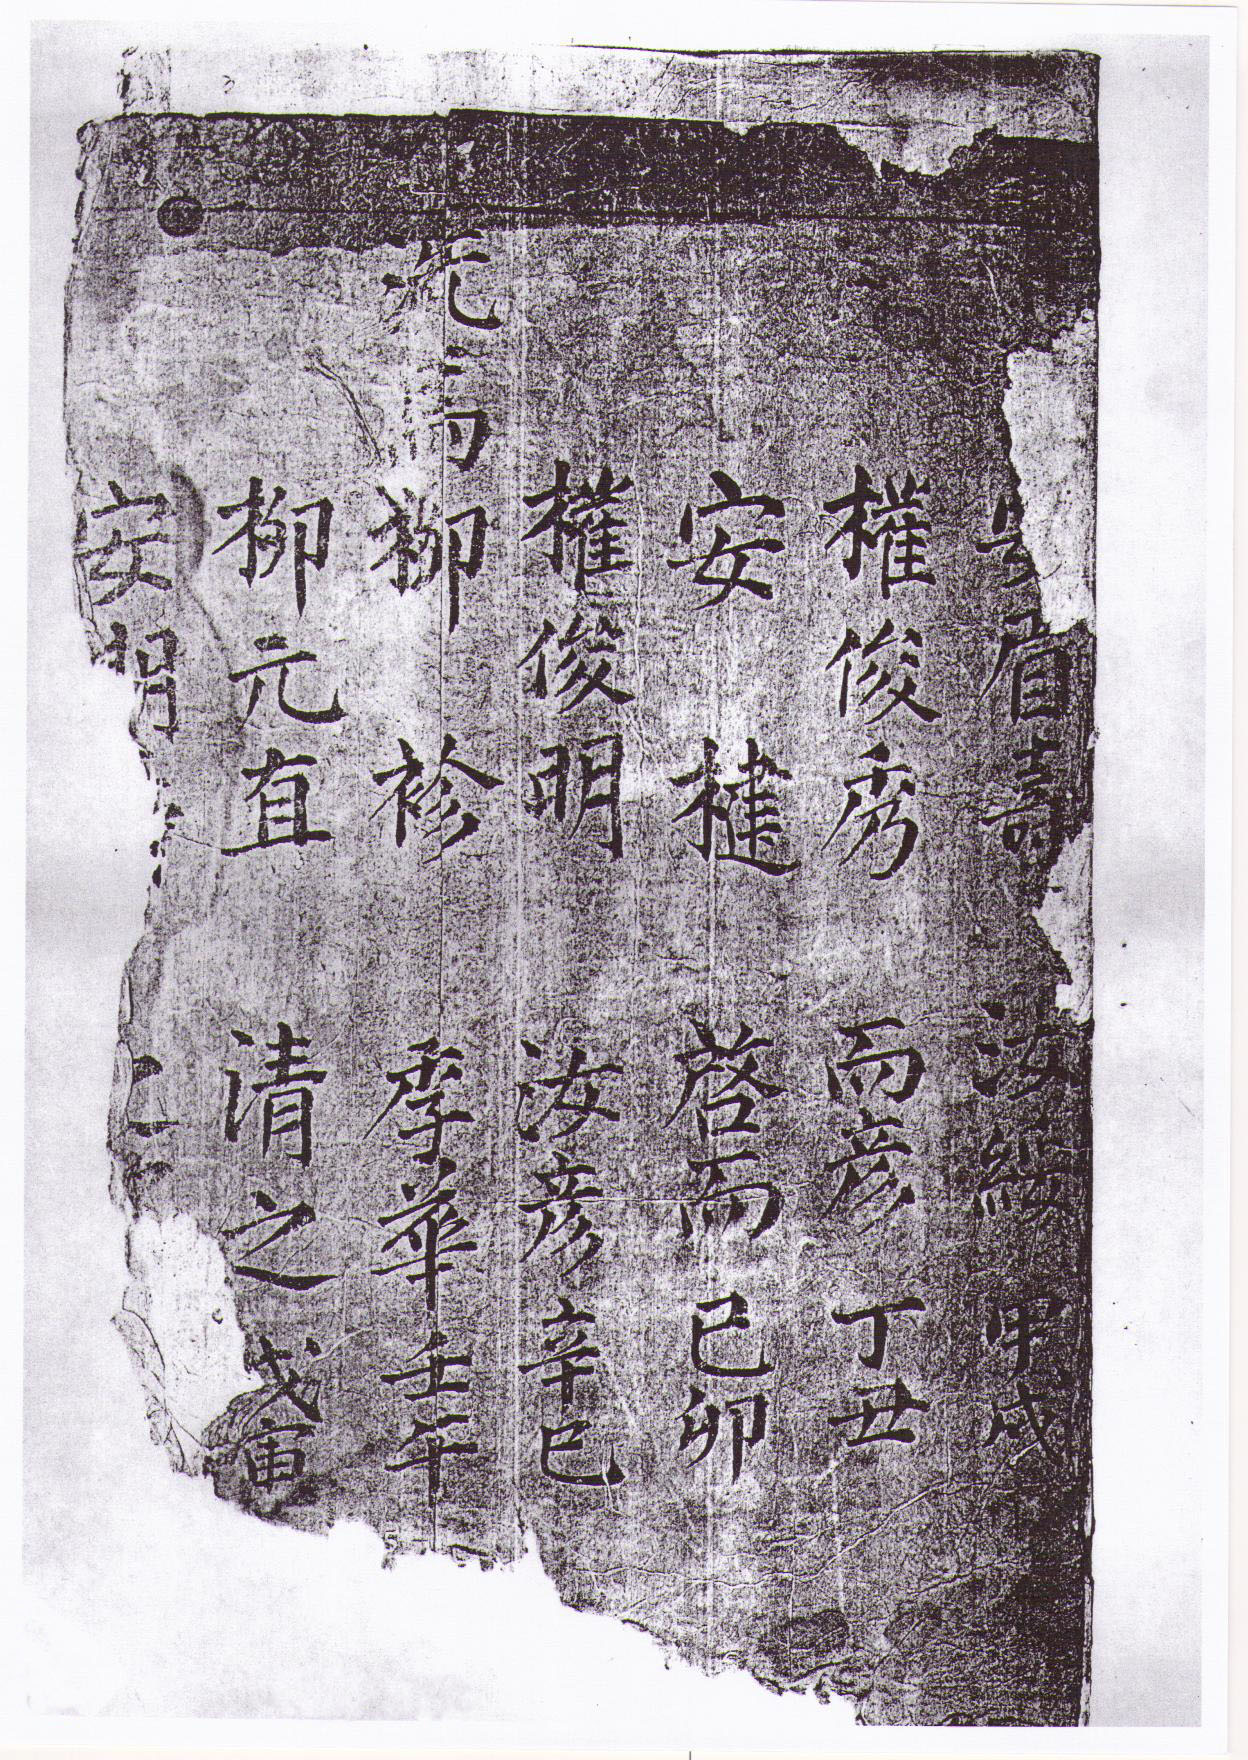 眉壽 汝綏 甲戌
權俊秀 而彦 丁丑
安㨗 啓而 己卯
權俊明 汝彦 辛巳
洗馬 柳袗 季華 壬午
柳元直 清之 戊寅
安